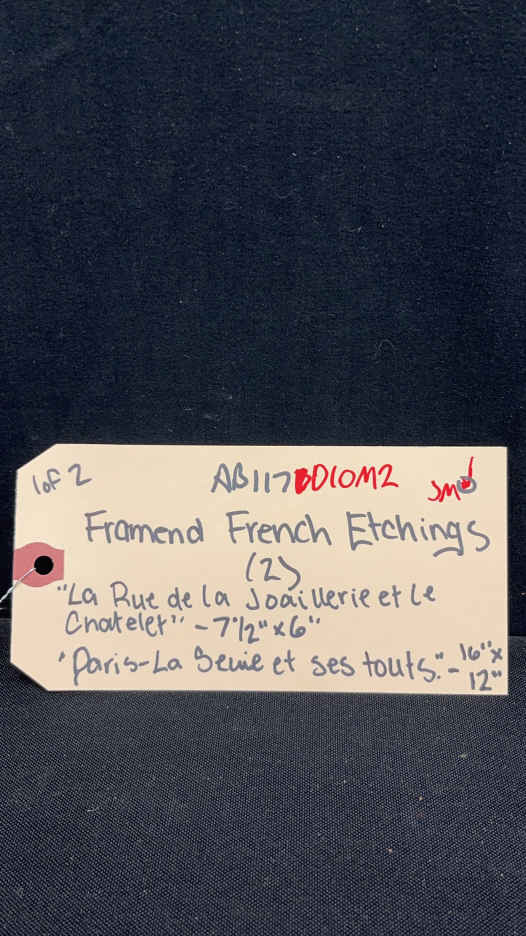 1 of 2 AB117 D10M2 JM
Framend French Etchings
(2)
"La Rue de la Joaillerie et le
Chatelet" - 7 1/2" x 6"
"Paris-La Seine et ses touts." - 16" x
12"